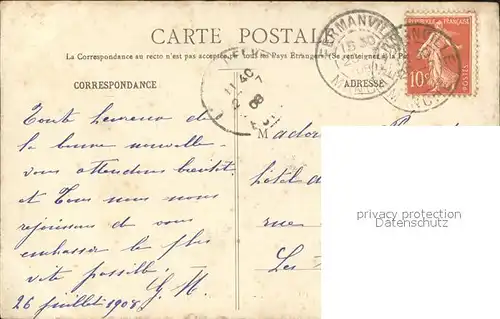 CARTE POSTALE
La Correspondance au recto n'est pas acceptée par tous les Pays Etrangers (Se renseigner à la Poste)
CORRESPONDANCE
ADRESSE
FERMANVILLE
MANCHE
RÉPUBLIQUE FRANÇAISE
10c
POSTES
11 40
08
Tout heureux de
la bonne nouvelle
vous attendons bientôt
et Tous nous nous
réjouissons de vous
embrasser le plus
vite possible.
26 juillet 1908 G. M.
M
hôtel
rue
Les
privacy protection
watermark